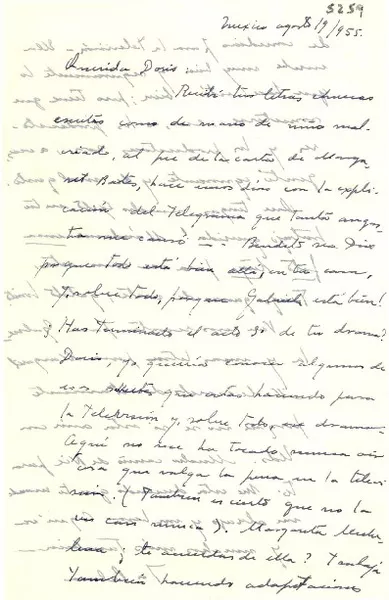 5259
Mexico agosto/9/955.
Querida Doris:
Recibí tus letras chuecas
escritas como de mano de niño mal
criado, al pie de la carta de Marga
ret Bates, hace unos días con la expli
cación del telegrama que tanta angus
tia me causó — Bendito sea Dios
porque todo está bien allá, en tu casa,
y, sobre todo, porque Gabriela está bien!
¿Has terminado el acto 3o de tu drama?
Doris, yo quería conocer algunos de
esos que estás haciendo para
la Televisión y, sobre todo, ese drama.
Aquí no me ha tocado nunca oír
cosa que valga la pena en la televi
sión (También es cierto que no la
veo casi nunca). Margarita
¿te acuerdas de ella? Trabaja
también haciendo adaptaciones